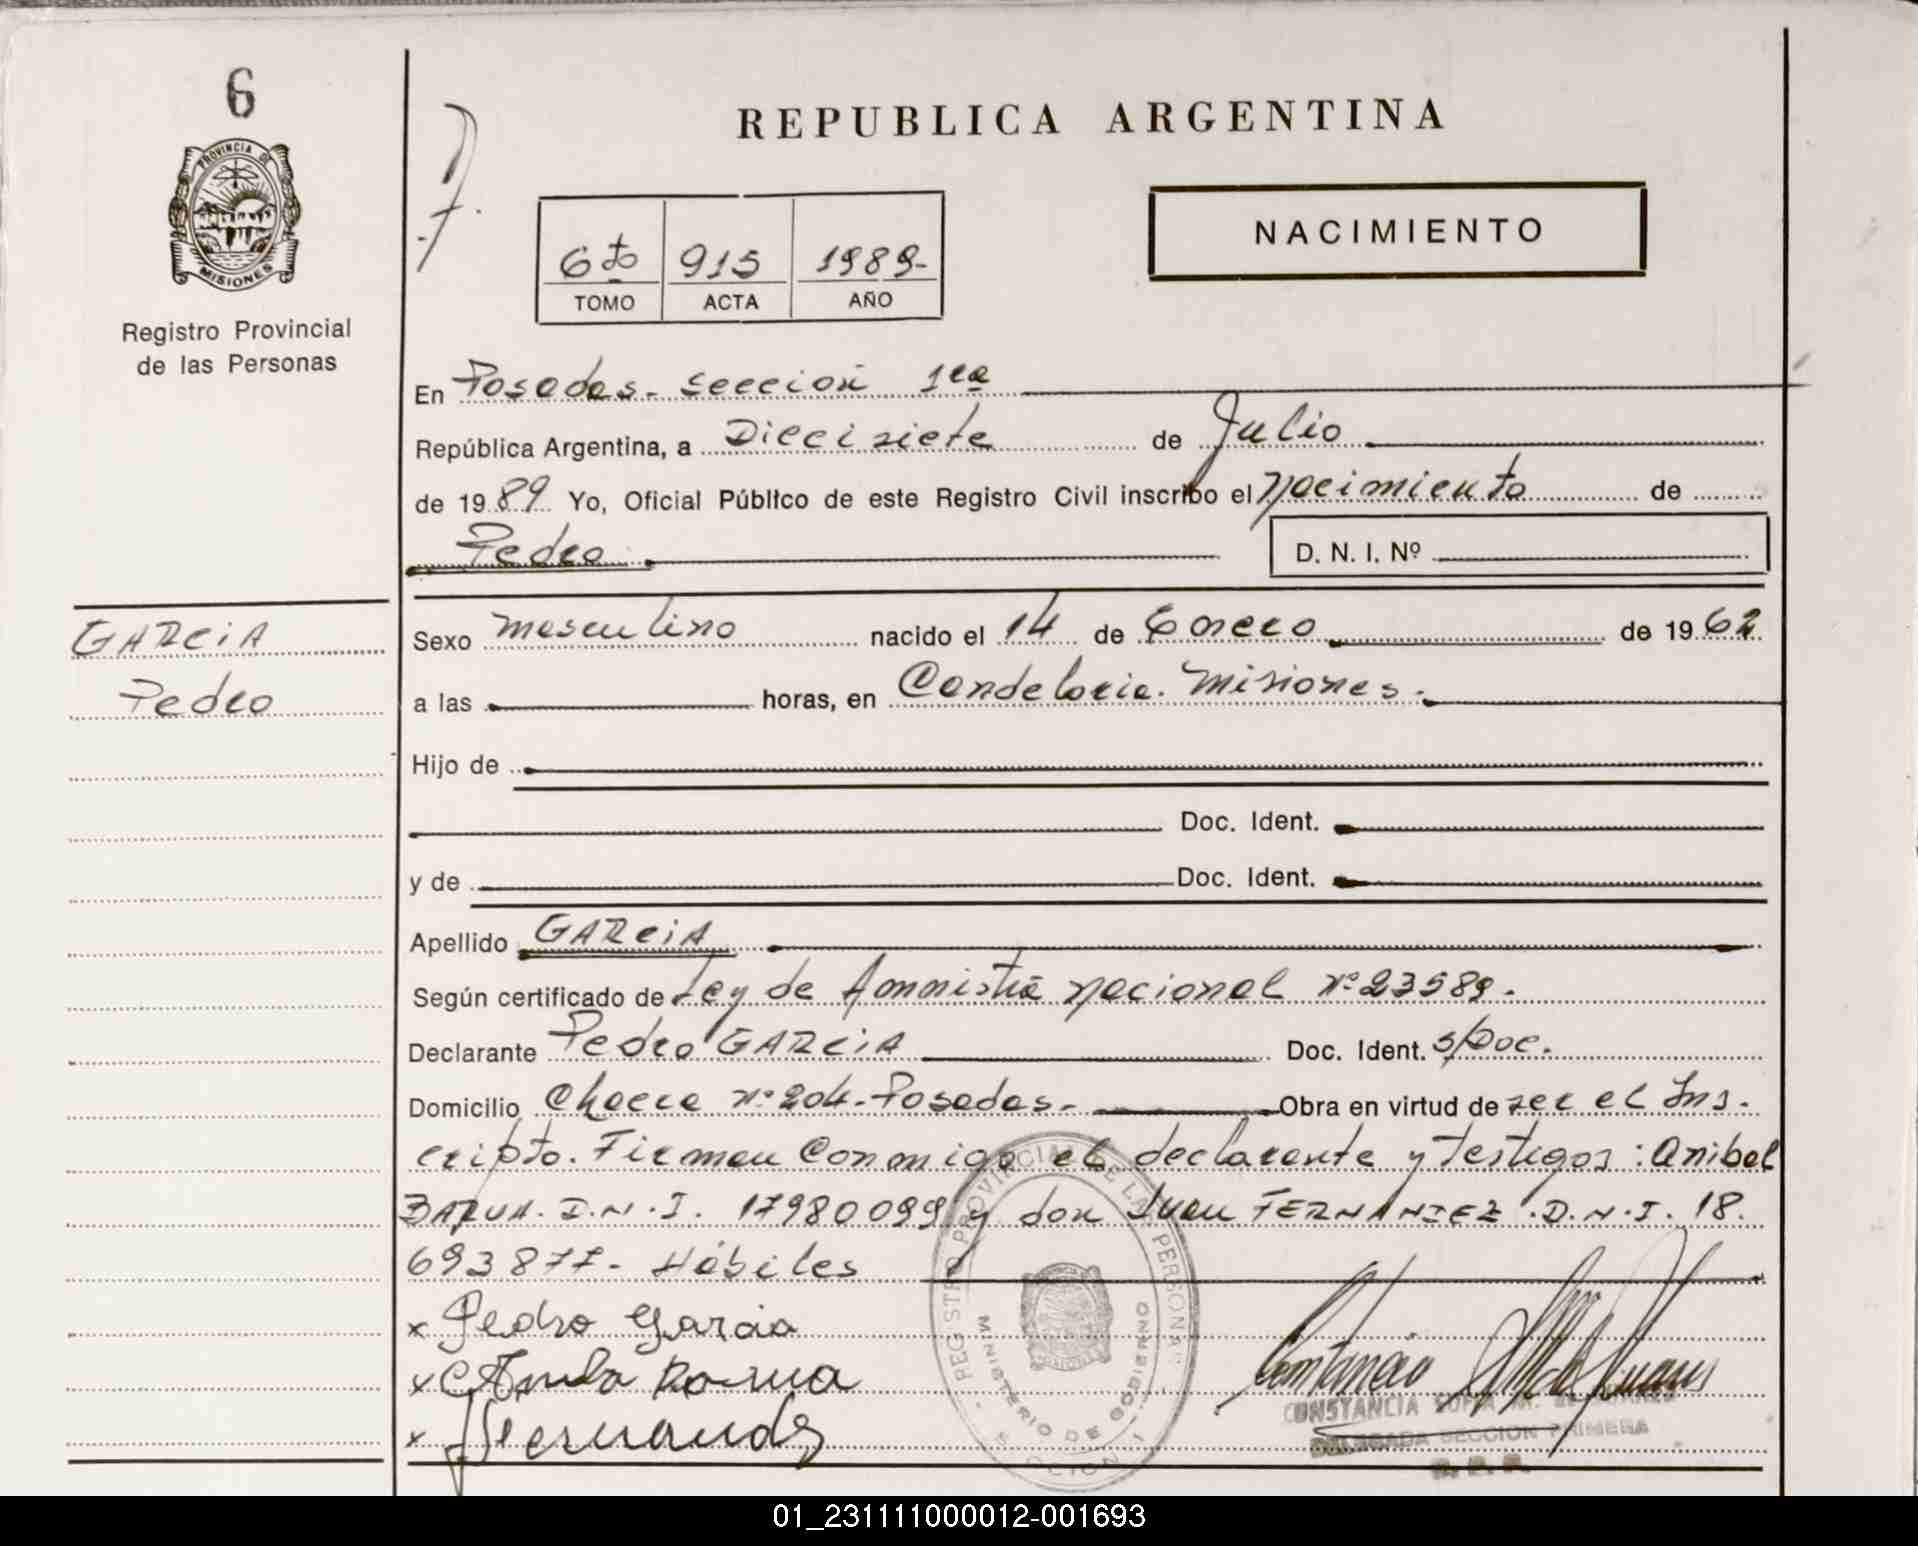 6
PROVINCIA DE
MISIONES
Registro Provincial
de las Personas
REPUBLICA ARGENTINA
6to 915 1989-
TOMO ACTA AÑO
NACIMIENTO
En Posadas - Sección 1ra
República Argentina, a Diecisiete de Julio
de 19 89 Yo, Oficial Público de este Registro Civil inscribo el Nacimiento de
Pedro D. N. I. Nº
GARCIA
Pedro
Sexo masculino nacido el 14 de Enero de 19 62
a las horas, en Candelaria. Misiones.
Hijo de
Doc. Ident.
y de Doc. Ident.
Apellido GARCIA
Según certificado de Ley de Amnistía Nacional Nº 23589.
Declarante Pedro GARCIA Doc. Ident. s/Doc.
Domicilio Chacra Nº 204 - Posadas - Obra en virtud de ser el Ins-
cripto. Firman Conmigo el declarante y Testigos: Anibal
D.N.I. 17980099 y don Juan FERNANDEZ. D.N.I. 18.
693877 - Hábiles
x Pedro Garcia
x
x Fernandez
REGISTRO PROVINCIAL DE LAS PERSONAS
MINISTERIO DE GOBIERNO
SECCION 1
CONSTANCIA SOFIA M. DE
DELEGADA SECCION PRIMERA
R. P. P.
01_231111000012-001693